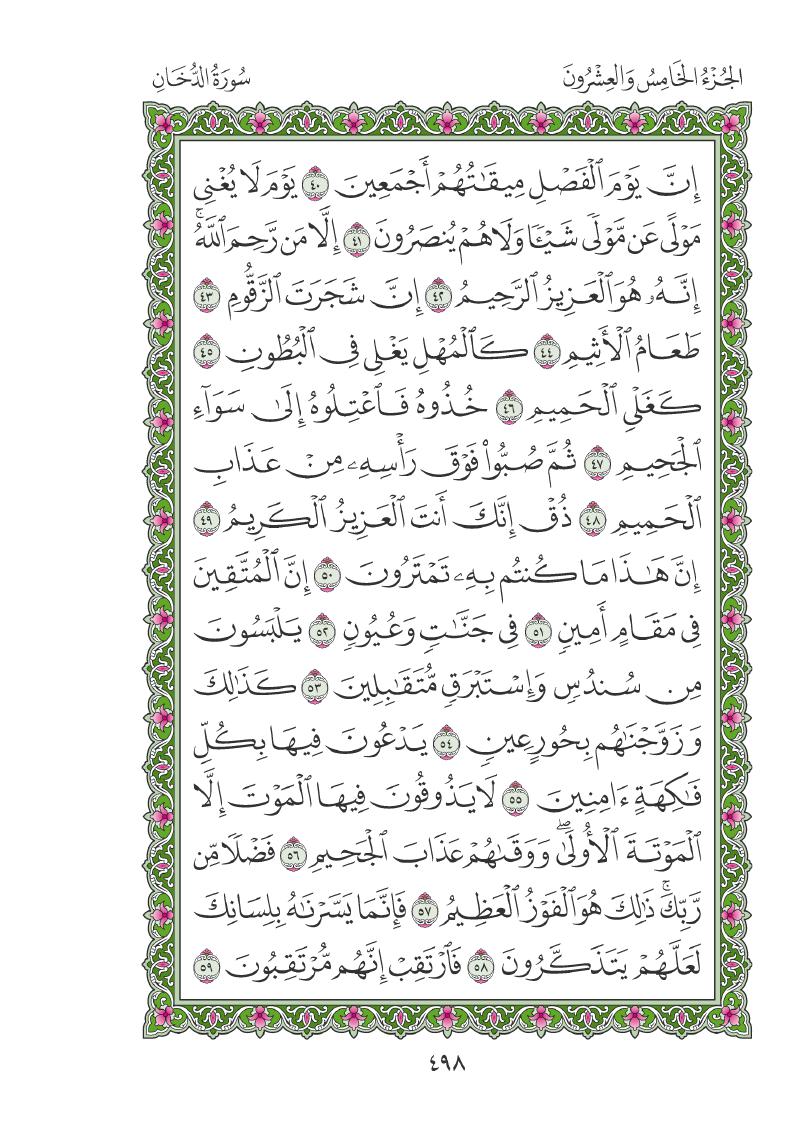 الجُزْءُ الخَامِسُ وَالعِشْرُونَ
سُورَةُ الدُّخَانِ
إِنَّ يَوْمَ ٱلْفَصْلِ مِيقَـٰتُهُمْ أَجْمَعِينَ ٤٠ يَوْمَ لَا يُغْنِي
مَوْلًى عَن مَّوْلًى شَيْـًٔا وَلَا هُمْ يُنصَرُونَ ٤١ إِلَّا مَن رَّحِمَ ٱللَّهُۚ
إِنَّهُۥ هُوَ ٱلْعَزِيزُ ٱلرَّحِيمُ ٤٢ إِنَّ شَجَرَتَ ٱلزَّقُّومِ ٤٣
طَعَامُ ٱلْأَثِيمِ ٤٤ كَٱلْمُهْلِ يَغْلِي فِي ٱلْبُطُونِ ٤٥
كَغَلْيِ ٱلْحَمِيمِ ٤٦ خُذُوهُ فَٱعْتِلُوهُ إِلَىٰ سَوَآءِ
ٱلْجَحِيمِ ٤٧ ثُمَّ صُبُّوا۟ فَوْقَ رَأْسِهِۦ مِنْ عَذَابِ
ٱلْحَمِيمِ ٤٨ ذُقْ إِنَّكَ أَنتَ ٱلْعَزِيزُ ٱلْكَرِيمُ ٤٩
إِنَّ هَـٰذَا مَا كُنتُم بِهِۦ تَمْتَرُونَ ٥٠ إِنَّ ٱلْمُتَّقِينَ
فِي مَقَامٍ أَمِينٍ ٥١ فِي جَنَّـٰتٍ وَعُيُونٍ ٥٢ يَلْبَسُونَ
مِن سُندُسٍ وَإِسْتَبْرَقٍ مُّتَقَـٰبِلِينَ ٥٣ كَذَٰلِكَ
وَزَوَّجْنَـٰهُم بِحُورٍ عِينٍ ٥٤ يَدْعُونَ فِيهَا بِكُلِّ
فَـٰكِهَةٍ ءَامِنِينَ ٥٥ لَا يَذُوقُونَ فِيهَا ٱلْمَوْتَ إِلَّا
ٱلْمَوْتَةَ ٱلْأُولَىٰۖ وَوَقَىٰهُمْ عَذَابَ ٱلْجَحِيمِ ٥٦ فَضْلًا مِّن
رَّبِّكَۚ ذَٰلِكَ هُوَ ٱلْفَوْزُ ٱلْعَظِيمُ ٥٧ فَإِنَّمَا يَسَّرْنَـٰهُ بِلِسَانِكَ
لَعَلَّهُمْ يَتَذَكَّرُونَ ٥٨ فَٱرْتَقِبْ إِنَّهُم مُّرْتَقِبُونَ ٥٩
٤٩٨